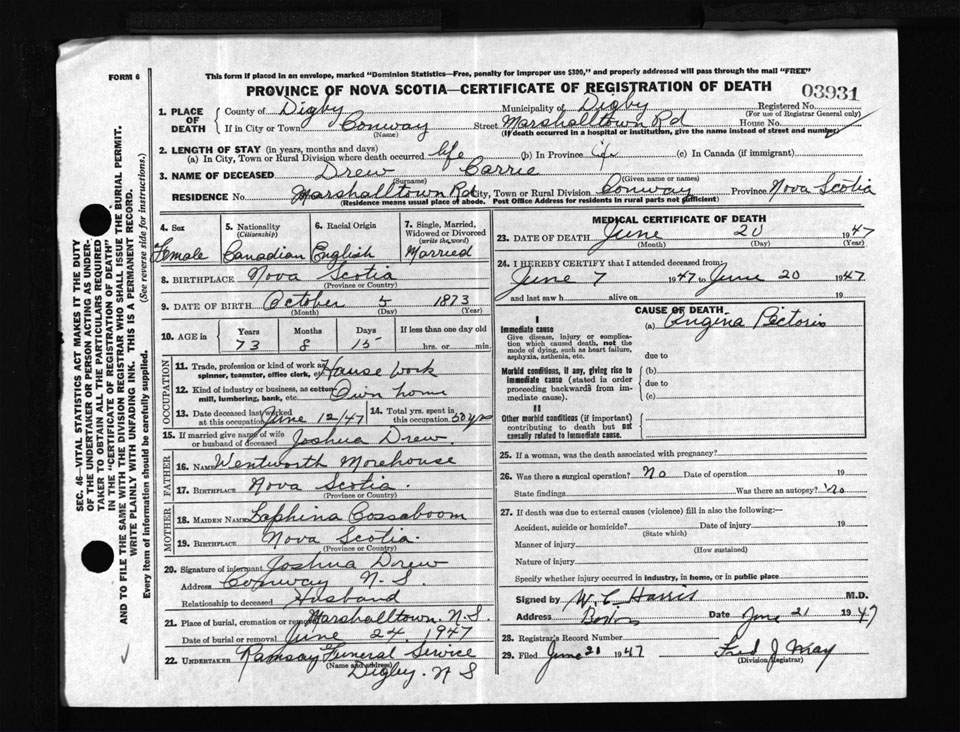 FORM 6
This form if placed in an envelope, marked "Dominion Statistics—Free, penalty for improper use $300," and properly addressed will pass through the mail "FREE"
PROVINCE OF NOVA SCOTIA—CERTIFICATE OF REGISTRATION OF DEATH
03931
1. PLACE OF DEATH
County of Digby Municipality of Digby Registered No.
(For use of Registrar General only)
If in City or Town Conway Street Marshalltown Rd House No.
(Name) (If death occurred in a hospital or institution, give the name instead of street and number)
2. LENGTH OF STAY (in years, months and days)
(a) In City, Town or Rural Division where death occurred life (b) In Province life (c) In Canada (if immigrant)
3. NAME OF DECEASED Drew Carrie
(Surname) (Given name or names)
RESIDENCE No. Marshalltown Rd City, Town or Rural Division Conway Province Nova Scotia
(Residence means usual place of abode. Post Office Address for residents in rural parts not sufficient)
SEC. 46—VITAL STATISTICS ACT MAKES IT THE DUTY
OF THE UNDERTAKER OR PERSON ACTING AS UNDER-
TAKER TO OBTAIN ALL THE PARTICULARS REQUIRED
IN THE "CERTIFICATE OF REGISTRATION OF DEATH"
AND TO FILE THE SAME WITH THE DIVISION REGISTRAR WHO SHALL ISSUE THE BURIAL PERMIT.
WRITE PLAINLY WITH UNFADING INK. THIS IS A PERMANENT RECORD.
Every item of information should be carefully supplied. (See reverse side for instructions.)
4. Sex Female
5. Nationality (Citizenship) Canadian
6. Racial Origin English
7. Single, Married, Widowed or Divorced (write the word) Married
8. BIRTHPLACE Nova Scotia
(Province or Country)
9. DATE OF BIRTH October 5 1873
(Month) (Day) (Year)
10. AGE in Years 73 Months 8 Days 15 If less than one day old hrs. or min.
OCCUPATION
11. Trade, profession or kind of work as spinner, teamster, office clerk, etc. House work
12. Kind of industry or business, as cotton mill, lumbering, bank, etc. Own home
13. Date deceased last worked at this occupation June 12/47 14. Total yrs. spent in this occupation 50 yrs
15. If married give name of wife or husband of deceased Joshua Drew
FATHER
16. Name Wentworth Morehouse
17. Birthplace Nova Scotia.
(Province or Country)
MOTHER
18. Maiden Name Saphina Cossaboom
19. Birthplace Nova Scotia.
(Province or Country)
20. Signature of informant Joshua Drew
Address Conway N.S.
Relationship to deceased Husband
21. Place of burial, cremation or removal Marshalltown, N.S.
Date of burial or removal June 24, 1947
22. UNDERTAKER Ramsay Funeral Service
(Name and address) Digby. N S
MEDICAL CERTIFICATE OF DEATH
23. DATE OF DEATH June 20 1947
(Month) (Day) (Year)
24. I HEREBY CERTIFY that I attended deceased from:
June 7 1947 to June 20 1947
and last saw h alive on 19
CAUSE OF DEATH
I
Immediate cause (a) Angina Pectoris
Give disease, injury or complica-
tion which caused death, not the
mode of dying, such as heart failure,
asphyxia, asthenia, etc. due to
Morbid conditions, if any, giving rise to (b)
immediate cause (stated in order due to
proceeding backwards from im-
mediate cause). (c)
II
Other morbid conditions (if important)
contributing to death but not
causally related to immediate cause.
25. If a woman, was the death associated with pregnancy?
26. Was there a surgical operation? No Date of operation 19
State findings Was there an autopsy? No
27. If death was due to external causes (violence) fill in also the following:—
Accident, suicide or homicide? Date of injury 19
(State which)
Manner of injury
(How sustained)
Nature of injury
Specify whether injury occurred in industry, in home, or in public place
Signed by W. C. Harris M.D.
Address Date June 21 1947
28. Registrar's Record Number
29. Filed June 21 1947 Fred J May
(Division Registrar)